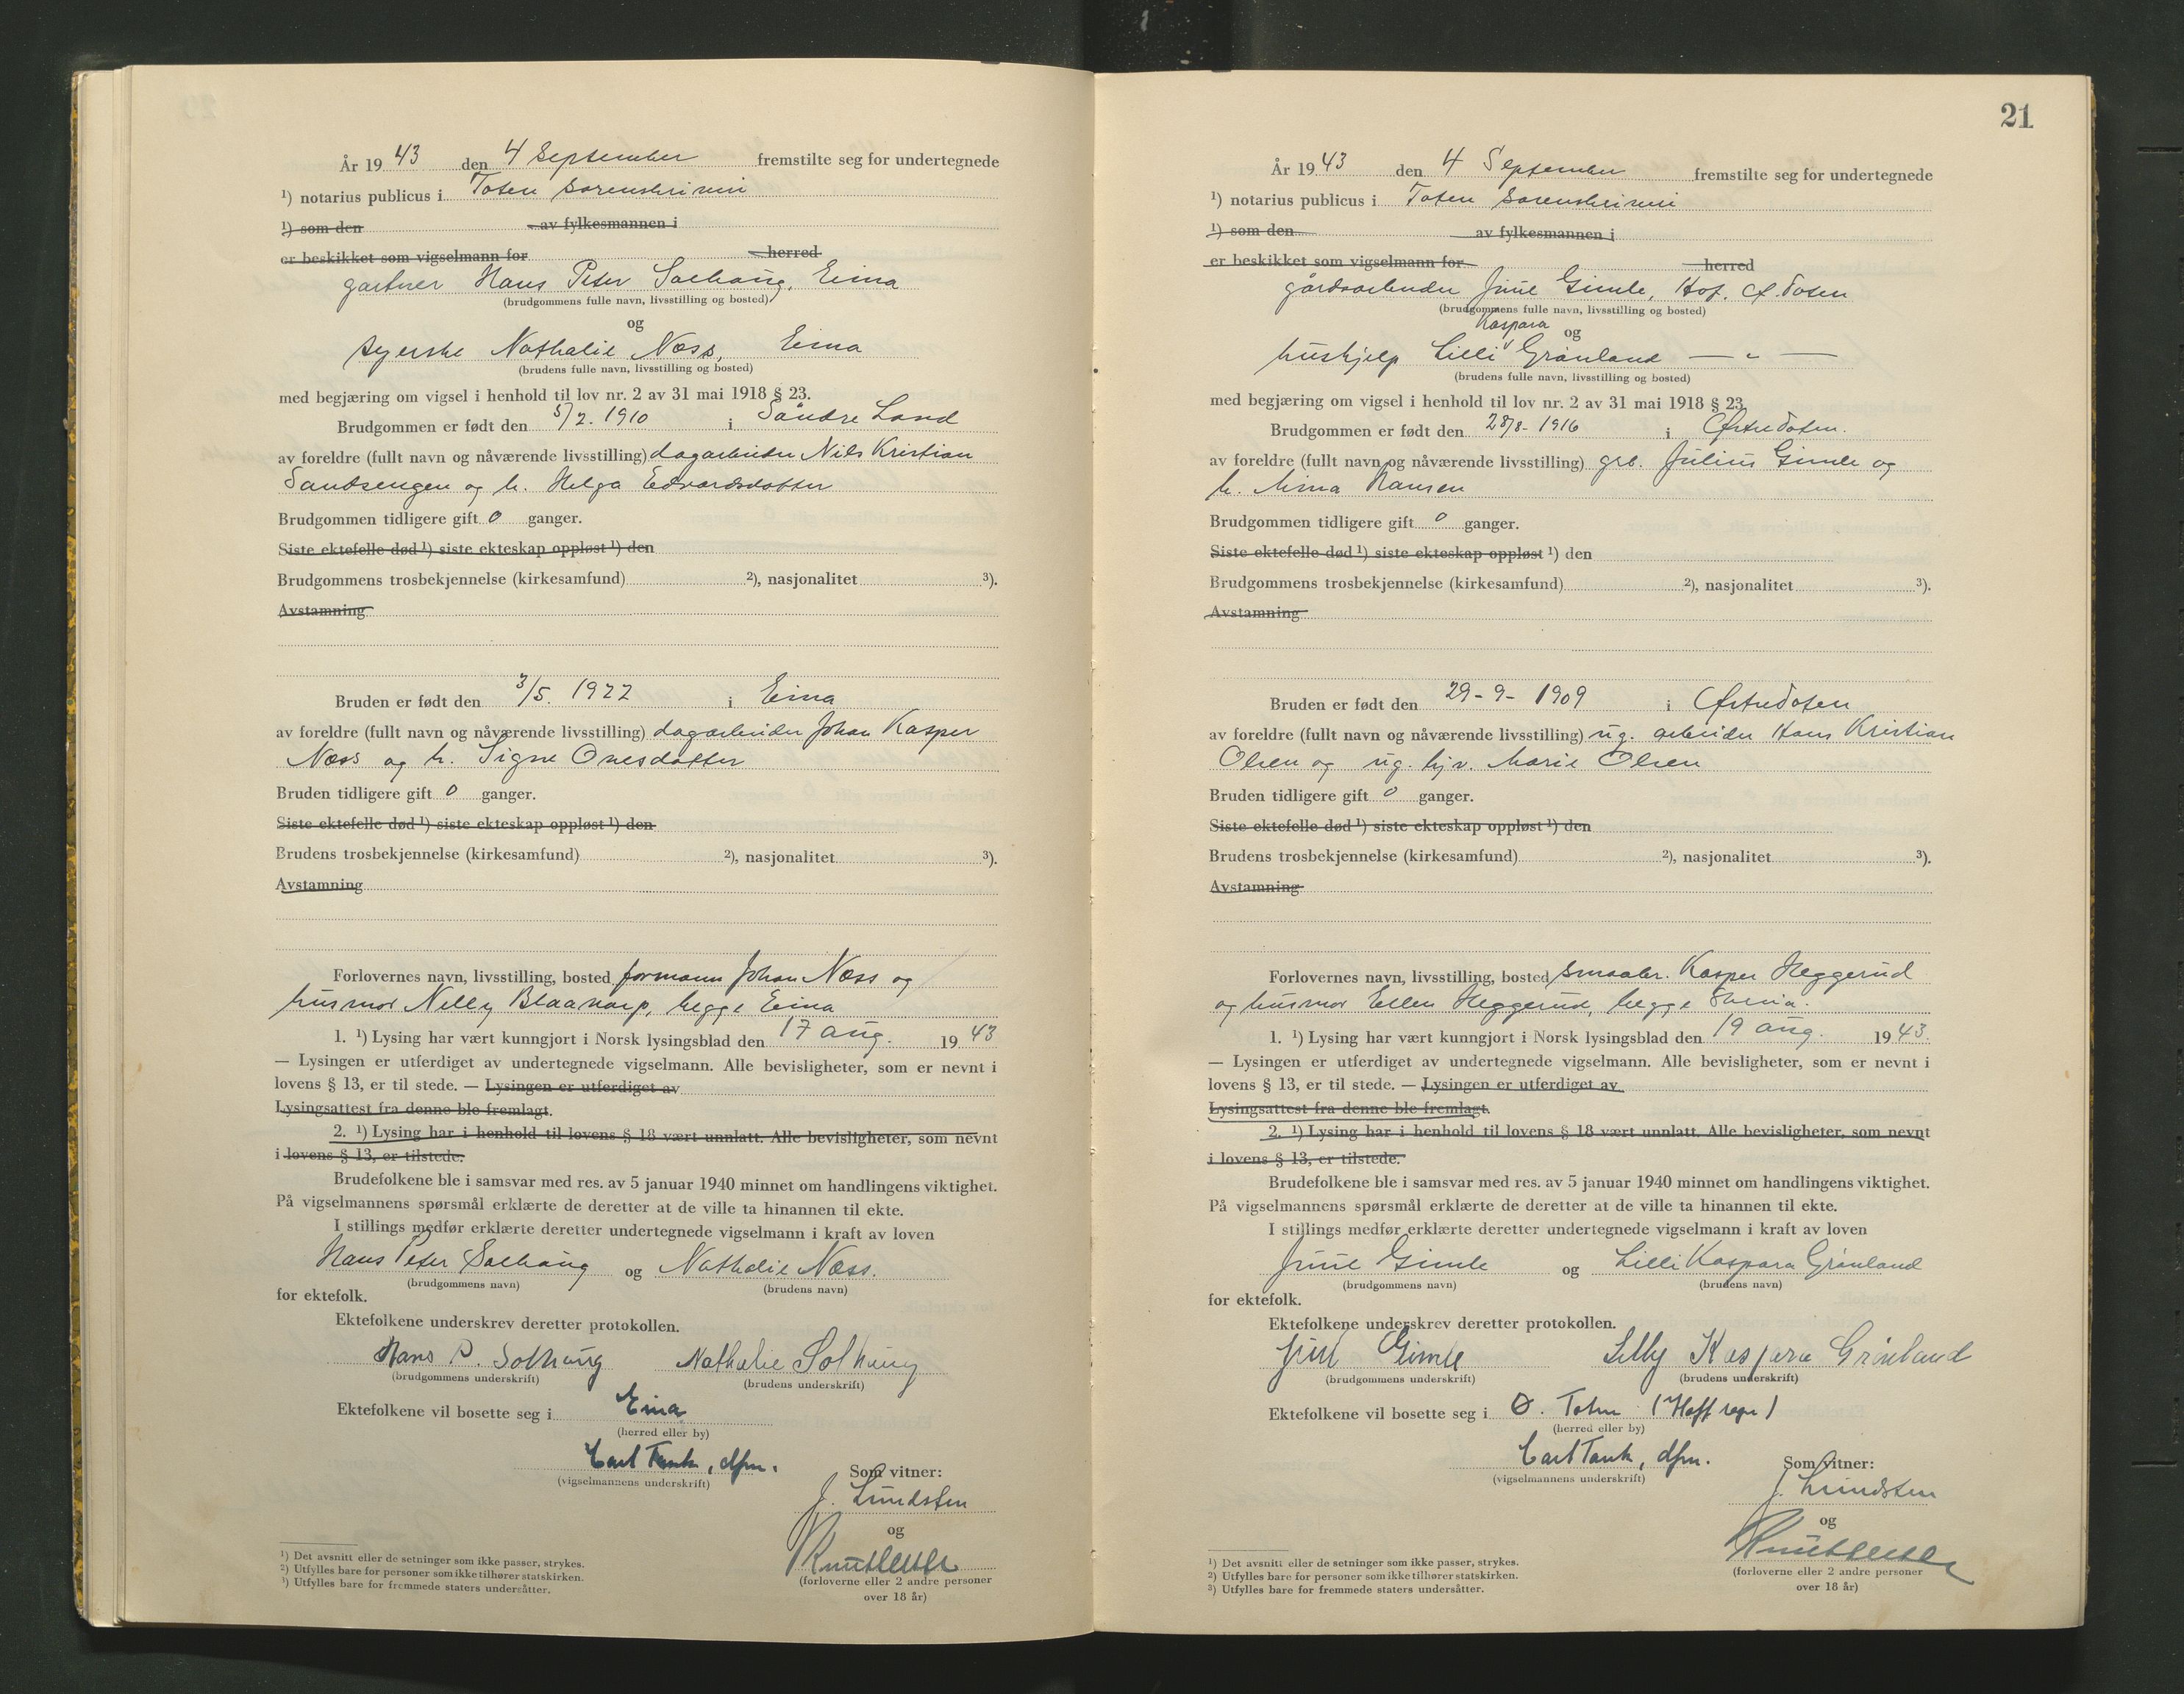 År 19 43 den 4 September fremstilte seg for undertegnede
¹) notarius publicus i Toten sorenskriveri
¹) som den av fylkesmannen i
er beskikket som vigselmann for herred
gartner Hans Peter Solhaug, Eina
(brudgommens fulle navn, livsstilling og bosted)
og
syerske Nathalie Næss, Eina
(brudens fulle navn, livsstilling og bosted)
med begjæring om vigsel i henhold til lov nr. 2 av 31 mai 1918 § 23.
Brudgommen er født den 5/2. 1910 i Søndre Land
av foreldre (fullt navn og nåværende livsstilling) dagarbeider Nils Kristian
Sandsengen og h. Helga Edvardsdatter
Brudgommen tidligere gift 0 ganger.
Siste ektefelle død ¹) siste ekteskap oppløst ¹) den
Brudgommens trosbekjennelse (kirkesamfund) ²), nasjonalitet ³).
Avstamning
Bruden er født den 3/5. 1922 i Eina
av foreldre (fullt navn og nåværende livsstilling) dagarbeider Johan Kasper
Næss og h. Signe Onesdatter
Bruden tidligere gift 0 ganger.
Siste ektefelle død ¹) siste ekteskap oppløst ¹) den
Brudens trosbekjennelse (kirkesamfund) ²), nasjonalitet ³).
Avstamning
Forlovernes navn, livsstilling, bosted formann Johan Næss og
husmor Nelly Blaavarp, begge Eina
1. ¹) Lysing har vært kunngjort i Norsk lysingsblad den 17 aug. 19 43
— Lysingen er utferdiget av undertegnede vigselmann. Alle bevisligheter, som er nevnt i
lovens § 13, er til stede. — Lysingen er utferdiget av
Lysingsattest fra denne ble fremlagt.
2. ¹) Lysing har i henhold til lovens § 18 vært unnlatt. Alle bevisligheter, som nevnt
i lovens § 13, er tilstede.
Brudefolkene ble i samsvar med res. av 5 januar 1940 minnet om handlingens viktighet.
På vigselmannens spørsmål erklærte de deretter at de ville ta hinannen til ekte.
I stillings medfør erklærte deretter undertegnede vigselmann i kraft av loven
Hans Peter Solhaug og Nathalie Næss.
(brudgommens navn) (brudens navn)
for ektefolk.
Ektefolkene underskrev deretter protokollen.
Hans P. Solhaug Nathalie Solhaug
(brudgommens underskrift) (brudens underskrift)
Ektefolkene vil bosette seg i Eina
(herred eller by)
Carl Tank, dfm.
(vigselmannens underskrift)
Som vitner:
J. Lundsten
og
(forloverne eller 2 andre personer
over 18 år)
¹) Det avsnitt eller de setninger som ikke passer, strykes.
²) Utfylles bare for personer som ikke tilhører statskirken.
³) Utfylles bare for fremmede staters undersåtter.
21
År 19 43 den 4 September fremstilte seg for undertegnede
¹) notarius publicus i Toten sorenskriveri
¹) som den av fylkesmannen i
er beskikket som vigselmann for herred
gårdsarbeider Juul Gimle, Hof, Ø. Toten
(brudgommens fulle navn, livsstilling og bosted)
Kaspara og
hushjelp Lilli Grønland — " —
(brudens fulle navn, livsstilling og bosted)
med begjæring om vigsel i henhold til lov nr. 2 av 31 mai 1918 § 23
Brudgommen er født den 28/8- 1916 i Østre Toten.
av foreldre (fullt navn og nåværende livsstilling) grb. Julius Gimle og
h. Mina Hansen
Brudgommen tidligere gift 0 ganger.
Siste ektefelle død ¹) siste ekteskap oppløst ¹) den
Brudgommens trosbekjennelse (kirkesamfund) ²), nasjonalitet ³).
Avstamning
Bruden er født den 29-9- 1909 i Østre Toten
av foreldre (fullt navn og nåværende livsstilling) ug. arbeider Hans Kristian
Olsen og ug. hjv. Marie Olsen
Bruden tidligere gift 0 ganger.
Siste ektefelle død ¹) siste ekteskap oppløst ¹) den
Brudens trosbekjennelse (kirkesamfund) ²), nasjonalitet ³).
Avstamning
Forlovernes navn, livsstilling, bosted smaabr. Kasper Heggerud
og husmor Ellen Heggerud, begge
1. ¹) Lysing har vært kunngjort i Norsk lysingsblad den 19 aug. 19 43.
— Lysingen er utferdiget av undertegnede vigselmann. Alle bevisligheter, som er nevnt i
lovens § 13, er til stede. — Lysingen er utferdiget av
Lysingsattest fra denne ble fremlagt.
2. ¹) Lysing har i henhold til lovens § 18 vært unnlatt. Alle bevisligheter, som nevnt
i lovens § 13, er tilstede.
Brudefolkene ble i samsvar med res. av 5 januar 1940 minnet om handlingens viktighet.
På vigselmannens spørsmål erklærte de deretter at de ville ta hinannen til ekte.
I stillings medfør erklærte deretter undertegnede vigselmann i kraft av loven
Juul Gimle og Lilli Kaspara Grønland
(brudgommens navn) (brudens navn)
for ektefolk.
Ektefolkene underskrev deretter protokollen.
Juul Gimle Lilly Kaspara Grønland
(brudgommens underskrift) (brudens underskrift)
Ektefolkene vil bosette seg i Ø. Toten (Hoff sogn)
(herred eller by)
Carl Tank, dfm.
(vigselmannens underskrift)
Som vitner:
J. Lundsten
og
(forloverne eller 2 andre personer
over 18 år)
¹) Det avsnitt eller de setninger som ikke passer, strykes.
²) Utfylles bare for personer som ikke tilhører statskirken.
³) Utfylles bare for fremmede staters undersåtter.